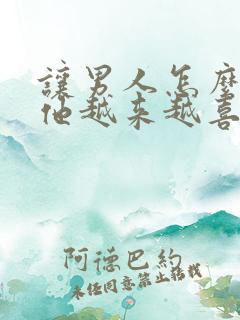 讓男人怎麼
他越來越喜
阿德巴約
未經同意禁止搭載